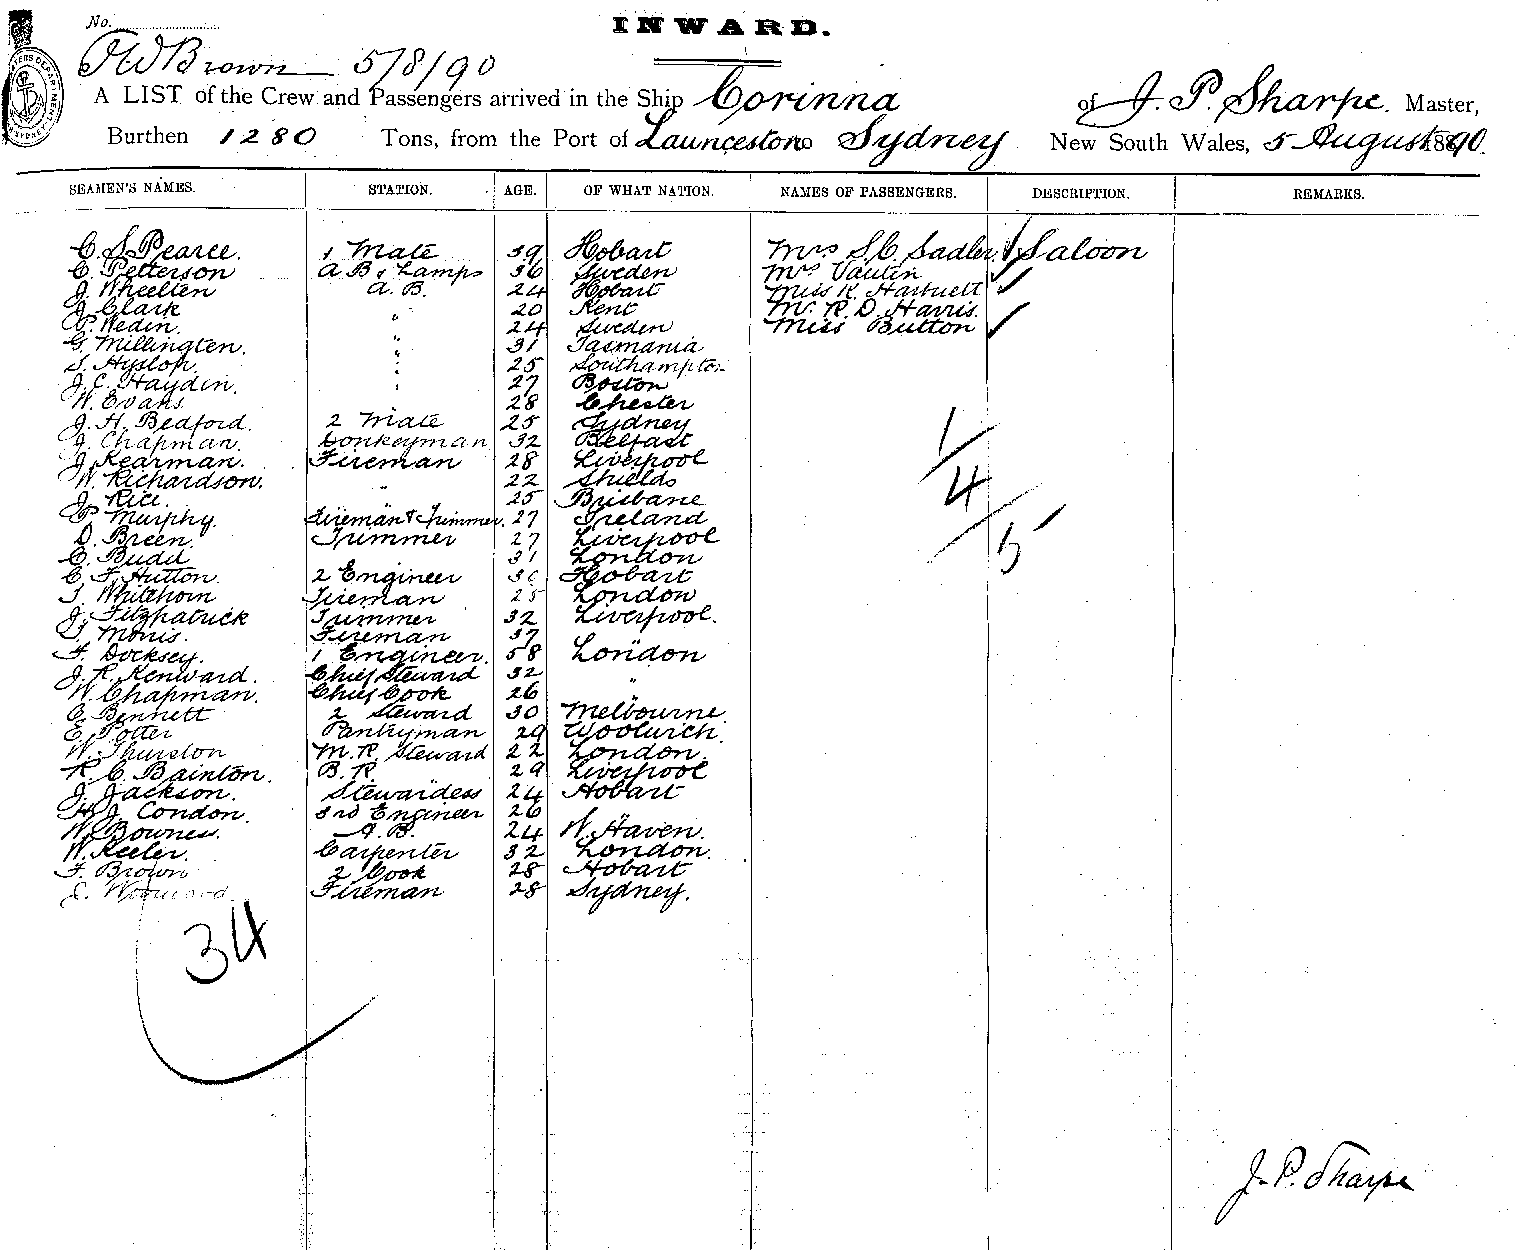 No.
INWARD.
F W Brown 5/8/90
A LIST of the Crew and Passengers arrived in the Ship Corinna of J. P. Sharpe. Master,
Burthen 1280 Tons, from the Port of Launceston to Sydney New South Wales, 5 August 1890.
SEAMEN'S NAMES. STATION. AGE. OF WHAT NATION. NAMES OF PASSENGERS. DESCRIPTION. REMARKS.
C. S. Pearce. 1 Mate 39 Hobart Mrs S. C. Sadler. Saloon
C. Petterson A B & Lamps 36 Sweden Mrs Vautin
J. Wheelten A. B. 24 Hobart Miss K. Hartnett
J. Clark " 20 Kent Mr. R. D. Harris.
P. Wedin. 24 Sweden Miss Button
G. Millington. " 31 Tasmania
S. Hyslop. " 25 Southampton
J. C. Hayden. " 27 Boston
W. Evans 28 Chester
J. H. Bedford. 2 Mate 25 Sydney
J. Chapman. Donkeyman 32 Belfast
J. Kearman. Fireman 28 Liverpool
W. Richardson. " 22 Shields
J. Rice. 25 Brisbane
P. Murphy. Fireman & Trimmer. 27 Ireland
D. Breen. Trimmer 27 Liverpool
C. Budd 31 London
C. F. Hutton. 2 Engineer 30 Hobart
T. Whitehorn Fireman 25 London
J. Fitzpatrick Trimmer 32 Liverpool.
T. Morris. Fireman 37 "
F. Docksey. 1 Engineer. 58 London
J. R. Kenward. Chief Steward 32 "
W. Chapman. Chief Cook 26 "
C. Bennett 2 Steward 30 Melbourne
E. Potter Pantryman 29 Woolwich.
W. Thurston M. R. Steward 22 London.
R. C. Bainton. B. R. " 29 Liverpool
J. Jackson. Stewardess 24 Hobart
H. J. Condon. 3rd Engineer 26 "
W. Bowness. A. B. 24 W. Haven.
W. Keeler. Carpenter 32 London.
F. Brown 2 Cook 28 Hobart
Fireman 28 Sydney.
1/4/5
34
J. P. Sharpe